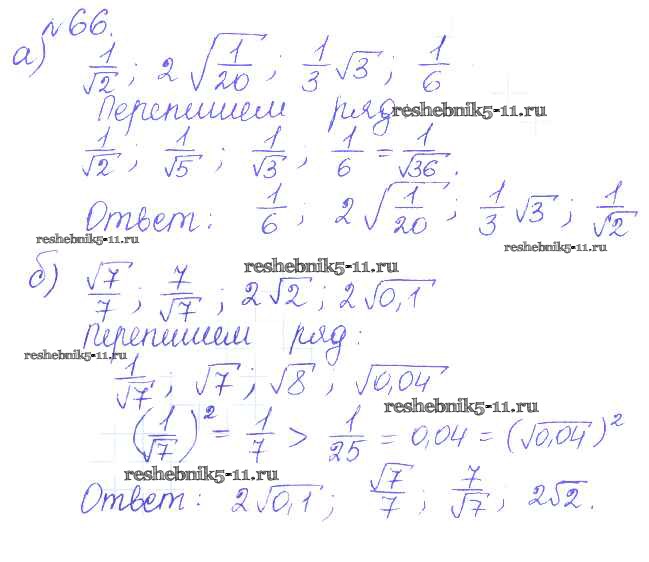 №66.
а) 1/√2; 2√(1/20); 1/3 √3; 1/6
Перепишем ряд reshebnik5-11.ru
1/√2; 1/√5; 1/√3; 1/6 = 1/√36.
Ответ: 1/6; 2√(1/20); 1/3 √3; 1/√2
reshebnik5-11.ru reshebnik5-11.ru
reshebnik5-11.ru
б) √7/7; 7/√7; 2√2; 2√0,1
Перепишем ряд:
reshebnik5-11.ru
1/√7; √7; √8, √0,04
reshebnik5-11.ru
(1/√7)² = 1/7 > 1/25 = 0,04 = (√0,04)²
reshebnik5-11.ru
Ответ: 2√0,1; √7/7; 7/√7; 2√2.